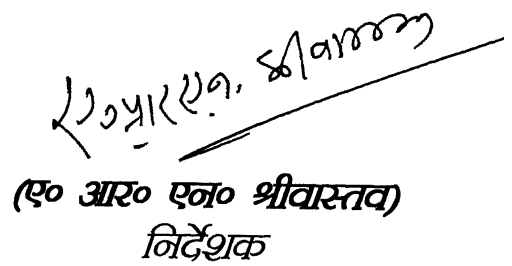 ए० आर० एन० श्रीवास्तव
(ए० आर० एन० श्रीवास्तव)
निर्देशक